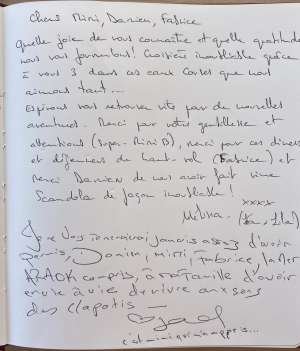 Chers Mimi, Damien, Fabrice
Quelle joie de vous connaître et quelle gratitude
nous vous fournissons! Croisière inoubliable grâce
à vous 3 dans ces eaux Corses que nous
aimons tant...
Espérons vous retrouver vite par de nouvelles
aventures. Merci pour votre gentillesse et
attentions (Super-Mimi B), merci pour ces dîners
et déjeuners de haut-vol (Fabrice) et
merci Damien de nous avoir fait vivre
Scandola de façon inoubliable!
xxxx
Melina
Je ne vous remercierai jamais assez d'avoir
permis, Damien, Mimi, Fabrice, la Mer
compris, à ma famille d'avoir
envie à vie de vivre aux sons
des clapotis
c'est mimi qui m'a appris...